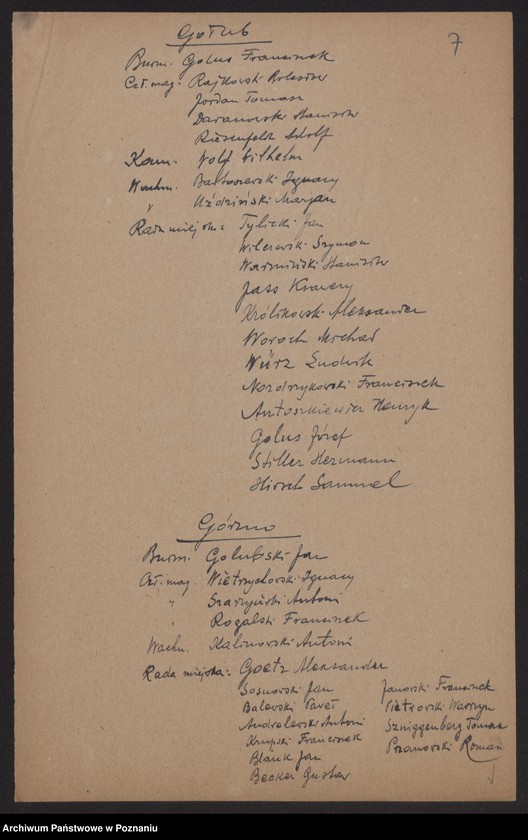 7
Gołub
Burm. Golus Franciszek
Czł. mag. Rajkowski Bolesław
Jordan Tomasz
Daranowski Stanisław
Riesenfeldt Adolf
Kom. Wolf Wilhelm
Wachm. Bartoszewski Ignacy
" Uździński Marjan
Rada miejska: Tylicki Jan
Wilczewski Szymon
Warmiński Stanisław
Jass Ksawery
Królikowski Aleksander
Woroch Michał
Würz Ludwik
Nozdrzykowski Franciszek
Antoszkiewicz Henryk
Golus Józef
Stiller Hermann
Hirsch Sammel
Górzno
Burm. Golubski Jan
Czł. mag. Wietrzychowski Ignacy
" Szarzyński Antoni
" Rogalski Franciszek
Wachm. Kalinowski Antoni
Rada miejska: Goetz Aleksander
Sosnowski Jan Janowski Franciszek
Balewski Paweł Pietrowski Wawrzyn
Andralewski Antoni Szniggenberg Tomasz
Krupski Franciszek Przanowski Roman
Blank Jan
Becker Gustaw
Archiwum Państwowe w Poznaniu